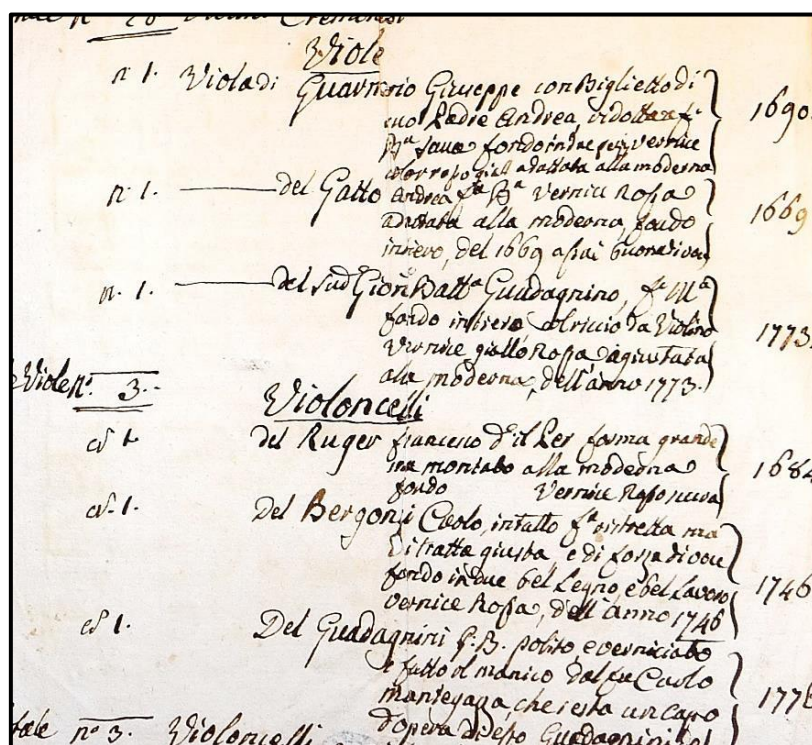 nº 28 Violini Cremonesi
Viole
nº 1. Viola di Guarnerio Giuseppe con Biglietto di
suo Padre Andrea, ridotta
Bª fondo in due vernice
adattata alla moderna 1690.
nº 1. del Gatto Andrea fª Bª Vernice Rossa
adattata alla moderna, fondo
intiero, del 1669 assai buona di voce 1669
nº. 1. del sudº Gion Battª Guadagnino, fª Mª
fondo intiero col riccio da Violino
Vernice giallo Rossa agiustata
ala moderna, dell'anno 1773. 1773.
e Viole nº. 3.
Violoncelli
nº 1. del Ruger francesco d.º il Per forma grande
ma montato alla moderna
fondo Vernice Rossa 1684
nº. 1. Del Bergonzi Carlo, in tutto fª ristretta ma
di tratta giusta e di forza di voce
fondo in due bel Legno, e bel Lavoro
vernice Rossa, dell'anno 1746 1746
nº 1. Del Guadagnini G.B. polito, e verniciato
e fatto il manico dal fu Carlo
mantegaza, che resta un capo 177
tale nº 3. Violoncelli d'opera di esso Guadagnini